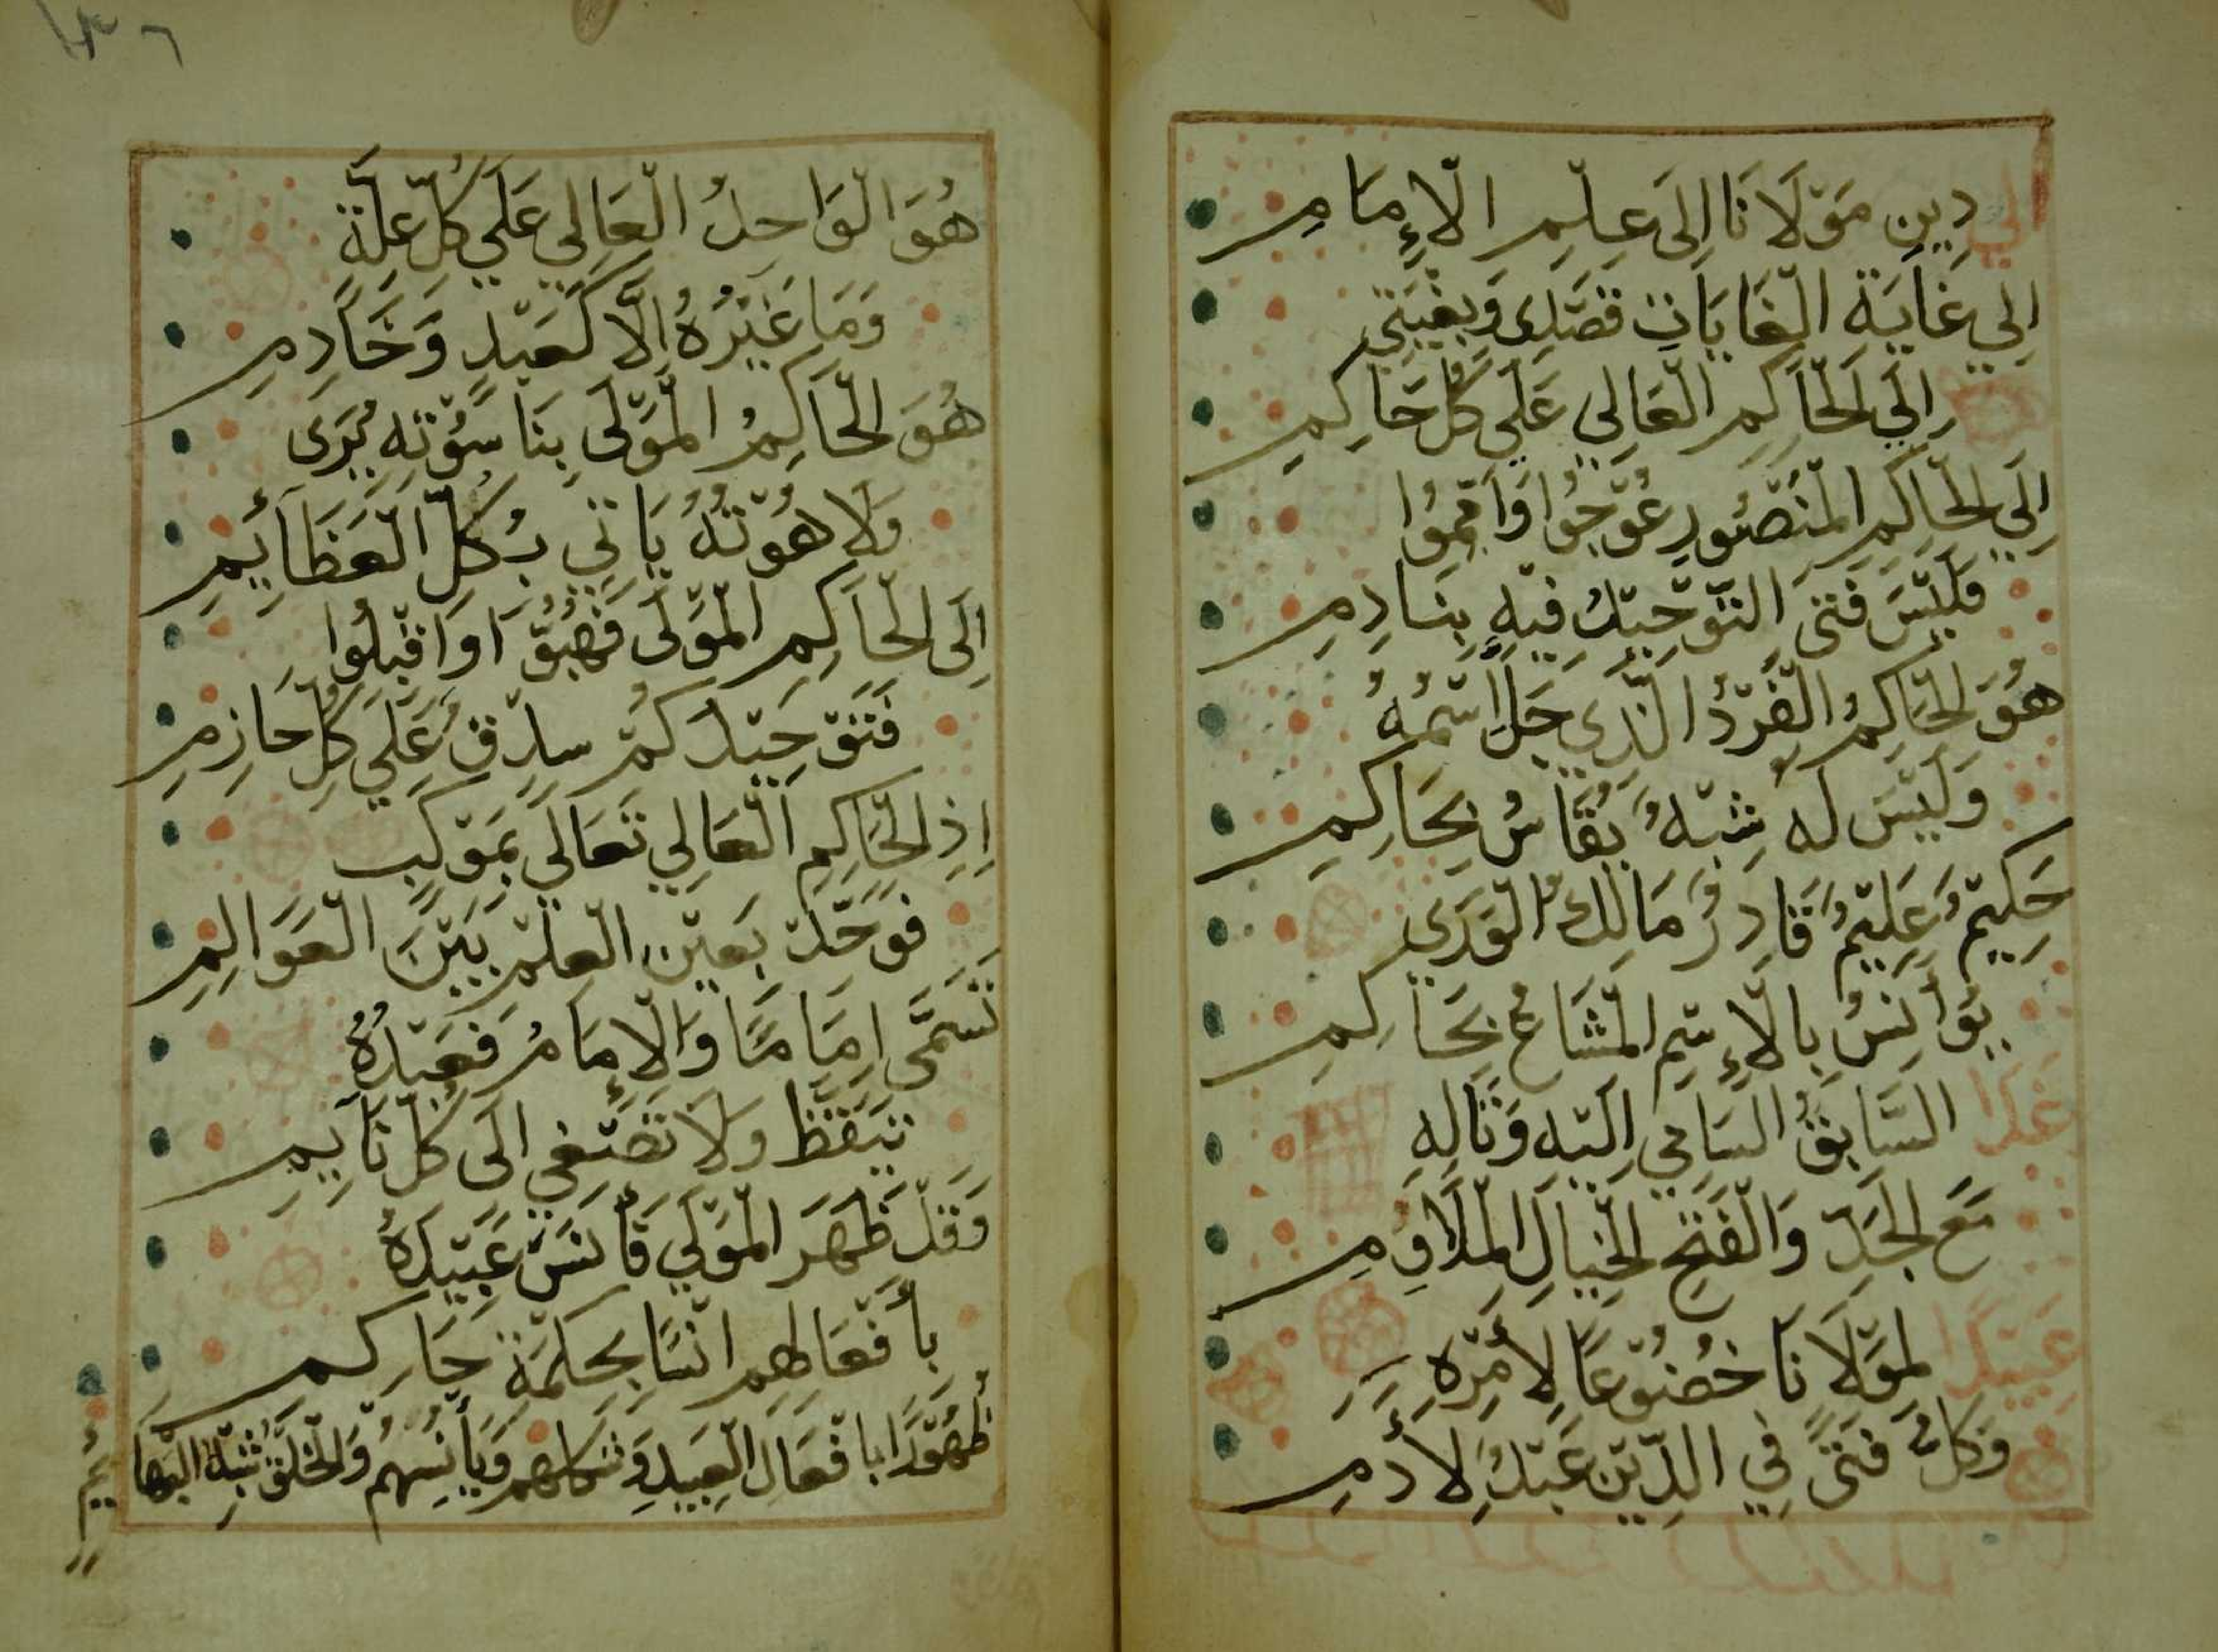 إلى دِينِ مَوْلَانَا إِلَى عِلْمِ الْإِمَامِ
إِلى غَايَةِ الْغَايَاتِ قَصْدِى وَبُغْيَتِي
إِلَى الْحَاكِمِ الْعَالِي عَلَى كُلِّ حَاكِمِ
إِلَى الْحَاكِمِ الْمَنْصُورِ عُوْجُوا وَاَمِّمُوا
فَلَيْسَ فَتَى التَّوْحِيْدِ فِيْهِ بِنَادِمِ
هُوَ الْحَاكِمُ الْفَرْدُ الَّذِي جَلَّ اسْمُهُ
وَلَيْسَ لَه شِبْهٌ يُقَاسُ بِحَاكِمِ
حَكِيْمٌ عَلِيْمٌ قَادِرٌ مَالِكُ الْوَرَى
يُؤَانِسُ بِالْإِسْمِ الْمُشَاعِ بِحَاكِمِ
غدا السَّابِقُ السَامِي اِلَيْهِ وَتَالِهِ
مَعَ الْجَدِّ وَالْفَتْحِ الْخَيَالِ الْمُلَاوِمِ
عَبِيْدًا لِمَوْلَانَا خُضُوْعًا لِأَمْرِهِ
وَكُلُّ فَتَىً فِي الدِّيْنِ عَبْدٌ لِأدمِ
هُوَ الْوَاحِدُ الْعَالِي عَلَى كُلِّ عِلَّةٍ
وَمَا غَيْرُهُ إِلَّا كَعَبْدٍ وَخَادِمِ
هُوَ الْحَاكِمُ الْمَوْلَى بِنَاسُوْتِهِ يُرَى
وَلَاهُوْتُهُ يَاتِي بِكُلِّ الْعَظَائِمِ
اِلَى الْحَاكِمِ الْمَوْلَى فَهُبُّوَا وَاقْبِلُوا
فَتَوْحِيْدُكُمْ سادق عَلَى كُلِّ حَازِمِ
اِذِ الْحَاكِمِ الْعَالِي تَعَالَى بِمَوْكَبٍ
فوَحِّدْ بَعَيْنِ الْعِلْمِ بَيْنَ الْعَوَالِمِ
تَسَمَّى إِمَامًا وَالْإِمَامُ فَعَبْدُهُ
تيَقَّظْ وَلَا تَصْغِي اِلَى كُلِّ نَايِمِ
وَقَدْ ظَهَرَ الْمَوْلَى فَأَنَسَ عَبِيْدَهُ
بِأَفْعَالِهِم انْسًا بِحِكْمَةِ حَاكِمِ
ظُهُوْرًا بِافْعَالَ الْعَبِيدِ وَشكلهم وَيَأْنِسُهُمْ وَالْخَلْقُ شِبْهُ الْبَهَا
ئِمِ
١٣٦